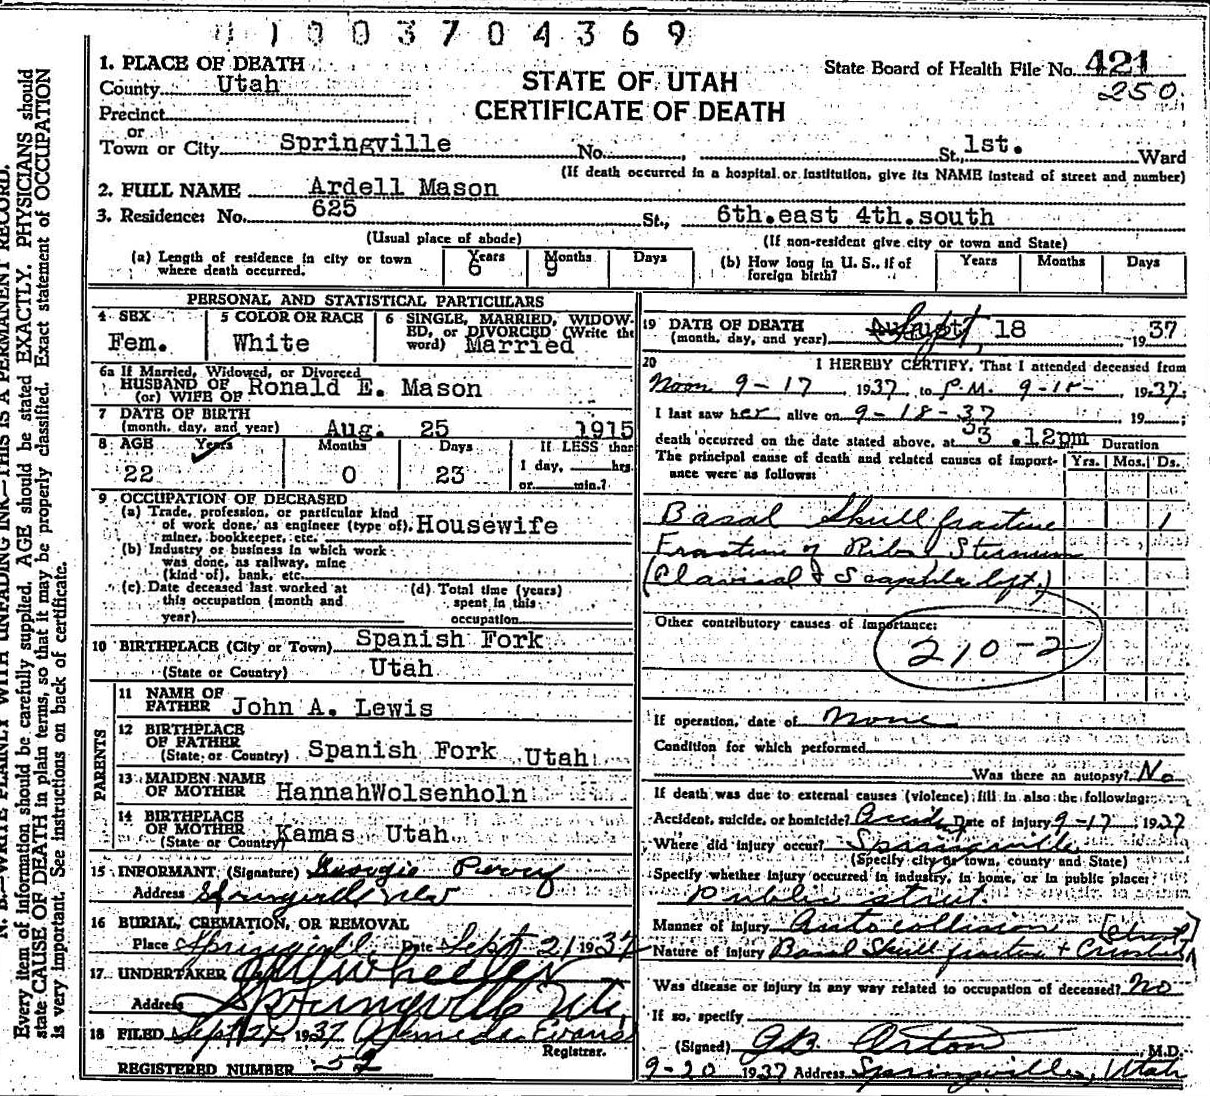 1003704369
1. PLACE OF DEATH
County Utah
Precinct
or
Town or City Springville No. St., 1st. Ward
STATE OF UTAH
CERTIFICATE OF DEATH
State Board of Health File No. 421
250
(If death occurred in a hospital or institution, give its NAME instead of street and number)
2. FULL NAME Ardell Mason
3. Residence: No. 625 St., 6th.east 4th.south
(Usual place of abode) (If non-resident give city or town and State)
(a) Length of residence in city or town where death occurred. Years 6 Months 9 Days
(b) How long in U. S., if of foreign birth? Years Months Days
PERSONAL AND STATISTICAL PARTICULARS
4 SEX Fem.
5 COLOR OR RACE White
6 SINGLE, MARRIED, WIDOW-
ED, or DIVORCED (Write the
word) Married
6a If Married, Widowed, or Divorced
HUSBAND OF
(or) WIFE OF Ronald E. Mason
7 DATE OF BIRTH
(month, day, and year) Aug. 25 1915
8 AGE Years 22 Months 0 Days 23
If LESS than
1 day, hrs.
or min.?
9 OCCUPATION OF DECEASED
(a) Trade, profession, or particular kind
of work done, as engineer (type of),
miner, bookkeeper, etc. Housewife
(b) Industry or business in which work
was done, as railway, mine
(kind of), bank, etc.
(c) Date deceased last worked at
this occupation (month and
year)
(d) Total time (years)
spent in this
occupation
10 BIRTHPLACE (City or Town) Spanish Fork
(State or Country) Utah
PARENTS
11 NAME OF
FATHER John A. Lewis
12 BIRTHPLACE
OF FATHER
(State or Country) Spanish Fork Utah
13 MAIDEN NAME
OF MOTHER HannahWolsenholn
14 BIRTHPLACE
OF MOTHER
(State or Country) Kamas Utah
15 INFORMANT (Signature) Georgie
Address Springville
16 BURIAL, CREMATION, OR REMOVAL
Place Springville Date Sept 21 1937
17 UNDERTAKER Wheeler
Address Springville Ut.
18 FILED Sept 21 1937 Evans
Registrar.
REGISTERED NUMBER 52
19 DATE OF DEATH
(month, day, and year) August Sept, 18 1937
20 I HEREBY CERTIFY, That I attended deceased from
Noon 9-17 1937, to P.M. 9-18- 1937.
I last saw her alive on 9-18-37 19 ;
death occurred on the date stated above, at 3 .12pm Duration
The principal cause of death and related causes of import-
ance were as follows: Yrs. Mos. Ds.
Basal Skull fracture 1
Fracture of Ribs Sternum
(Clavical & Scapula left)
Other contributory causes of importance:
210-2
If operation, date of None
Condition for which performed
Was there an autopsy? No
If death was due to external causes (violence) fill in also the following:
Accident, suicide, or homicide? Accident Date of injury 9-17 1937
Where did injury occur? Springville
(Specify city or town, county and State)
Specify whether injury occurred in industry, in home, or in public place:
Public street.
Manner of injury Auto collision
Nature of injury Basal Skull fracture +
Was disease or injury in any way related to occupation of deceased? no
If so, specify
(Signed) G.B. Orton, M.D.
9-20 1937 Address Springville, Utah
N. B.—WRITE PLAINLY WITH UNFADING INK—THIS IS A PERMANENT RECORD.
Every item of information should be carefully supplied. AGE should be stated EXACTLY. PHYSICIANS should
state CAUSE OF DEATH in plain terms, so that it may be properly classified. Exact statement of OCCUPATION
is very important. See instructions on back of certificate.